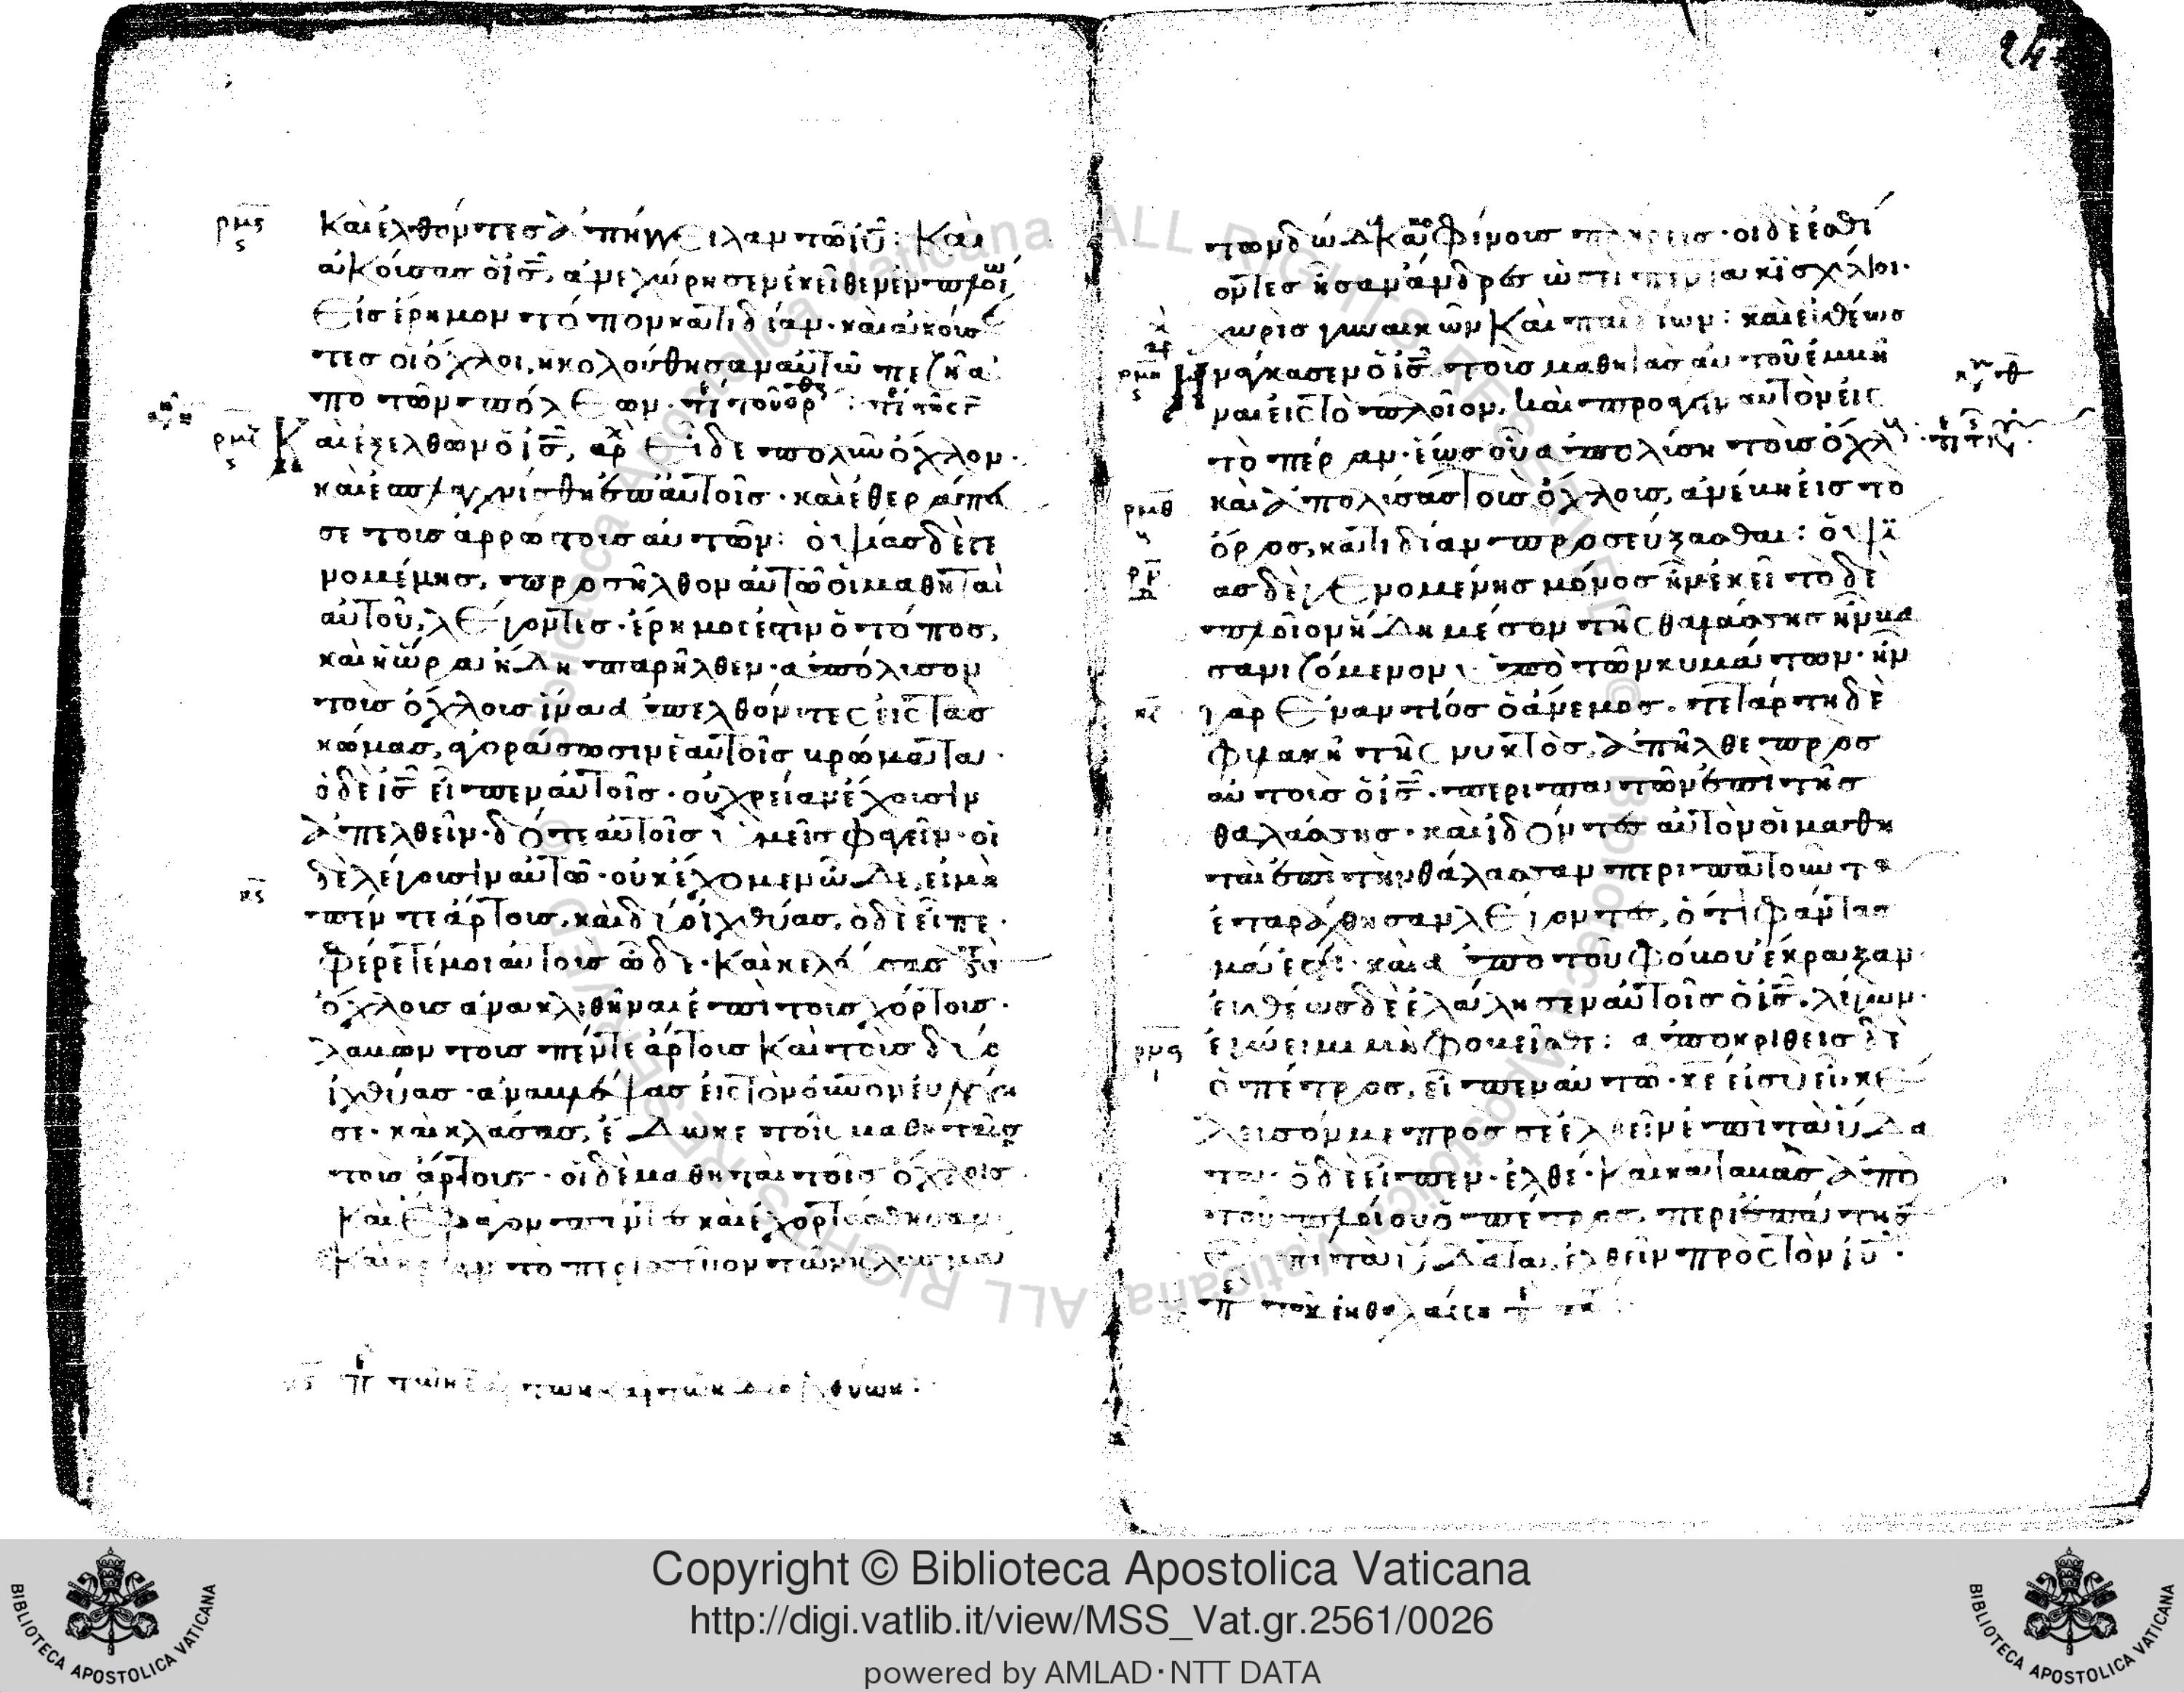 καὶ ἐλθόντες ἀπήγγειλαν τῶ ἰῦ: Καὶ
ἀκούσας ὁ ἰς, ἀνεχώρησεν ἐκεῖθεν ἐν πλοίω
εἰς ἔρημον τόπον κατ ἰδίαν. καὶ ἀκούσαν
τες οἱ ὄχλοι, ἠκολούθησαν αὐτῶ πεζῆ ἀ
πὸ τῶν πόλεων.
Καὶ ἐξελθὼν ὁ ἰς, εἶδε πολὺν ὄχλον.
καὶ ἐσπλαγχνίσθη ἐπ αὐτοῖς. καὶ ἐθεράπευ
σε τοὺς ἀρρώστους αὐτῶν: ὀψίας δὲ γε
νομένης, προσῆλθον αὐτῶ οἱ μαθηταὶ
αὐτοῦ, λέγοντες. ἔρημός ἐστιν ὁ τόπος,
καὶ ἡ ὥρα ἤδη παρῆλθεν. ἀπόλυσον
τοὺς ὄχλους ἵνα ἀπελθόντες εἰς τὰς
κώμας, ἀγοράσωσιν ἑαυτοῖς βρώματα.
ὁ δὲ ἰς εἶπεν αὐτοῖς. οὐ χρείαν ἔχουσιν
ἀπελθεῖν. δότε αὐτοῖς ὑμεῖς φαγεῖν. οἱ
δὲ λέγουσιν αὐτῶ. οὐκ ἔχομεν ὧδε, εἰ μὴ
πέντε ἄρτους, καὶ δύο ἰχθύας. ὁ δὲ εἶπε.
φέρετέ μοι αὐτοὺς ὧδε. Καὶ κελεύσας τοὺς
ὄχλους ἀνακλιθῆναι ἐπὶ τοὺς χόρτους.
λαβὼν τοὺς πέντε ἄρτους καὶ τοὺς δύο
ἰχθύας. ἀναβλέψας εἰς τὸν οὐνον εὐλόγη
σε. καὶ κλάσας, ἔδωκε τοῖς μαθηταῖς
τοὺς ἄρτους. οἱ δὲ μαθηταὶ τοῖς ὄχλοις.
Καὶ ἔφαγον πάντες καὶ ἐχορτάσθησαν.
Καὶ ἦραν τὸ περισσεῦον τῶν κλασμά
των δώδεκα κοφίνους πλήρεις. οἱ δὲ ἐσθί
οντες ἦσαν ἄνδρες ὡσεὶ πεντακισχίλιοι.
χωρὶς γυναικῶν καὶ παιδίων: καὶ εὐθέως
ἠνάγκασεν ὁ ἰς τοὺς μαθητὰς αὐτοῦ ἐμβῆ
ναι εἰς τὸ πλοῖον, καὶ προάγειν αὐτὸν εἰς
τὸ πέραν. ἕως οὗ ἀπολύση τοὺς ὄχλους.
καὶ ἀπολύσας τοὺς ὄχλους, ἀνέβη εἰς τὸ
ὄρος, κατ ἰδίαν προσεύξασθαι: ὀψί
ας δὲ γενομένης μόνος ἦν ἐκεῖ τὸ δὲ
πλοῖον ἤδη μέσον τῆς θαλάσσης ἦν βα
σανιζόμενον ὑπὸ τῶν κυμάτων. ἦν
γὰρ ἐναντίος ὁ ἄνεμος. τετάρτη δὲ
φυλακῆ τῆς νυκτὸς, ἀπῆλθε πρὸς
αὐτοὺς ὁ ἰς. περιπατῶν ἐπὶ τῆς
θαλάσσης. καὶ ἰδόντες αὐτὸν οἱ μαθη
ταὶ ἐπὶ τὴν θάλασσαν περιπατοῦντα
ἐταράχθησαν λέγοντες, ὅτι φάντασ
μά ἐστι. καὶ ἀπὸ τοῦ φόβου ἔκραξαν.
εὐθέως δὲ ἐλάλησεν αὐτοῖς ὁ ἰς. λέγων.
ἐγώ εἰμι μὴ φοβεῖσθε: ἀποκριθεὶς δὲ
ὁ πέτρος, εἶπεν αὐτῶ. κε εἰ σὺ εἶ, κε
λευσόν με πρός σε ἐλθεῖν ἐπὶ τὰ ὕδα
τα. ὁ δὲ εἶπεν. ἐλθέ. Καὶ καταβὰς ἀπὸ
τοῦ πλοίου ὁ πέτρος, περιεπάτησ
ἐπὶ τὰ ὕδατα, ἐλθεῖν πρὸς τὸν ἰῦ.
Copyright © Biblioteca Apostolica Vaticana
http://digi.vatlib.it/view/MSS_Vat.gr.2561/0026
powered by AMLAD·NTT DATA